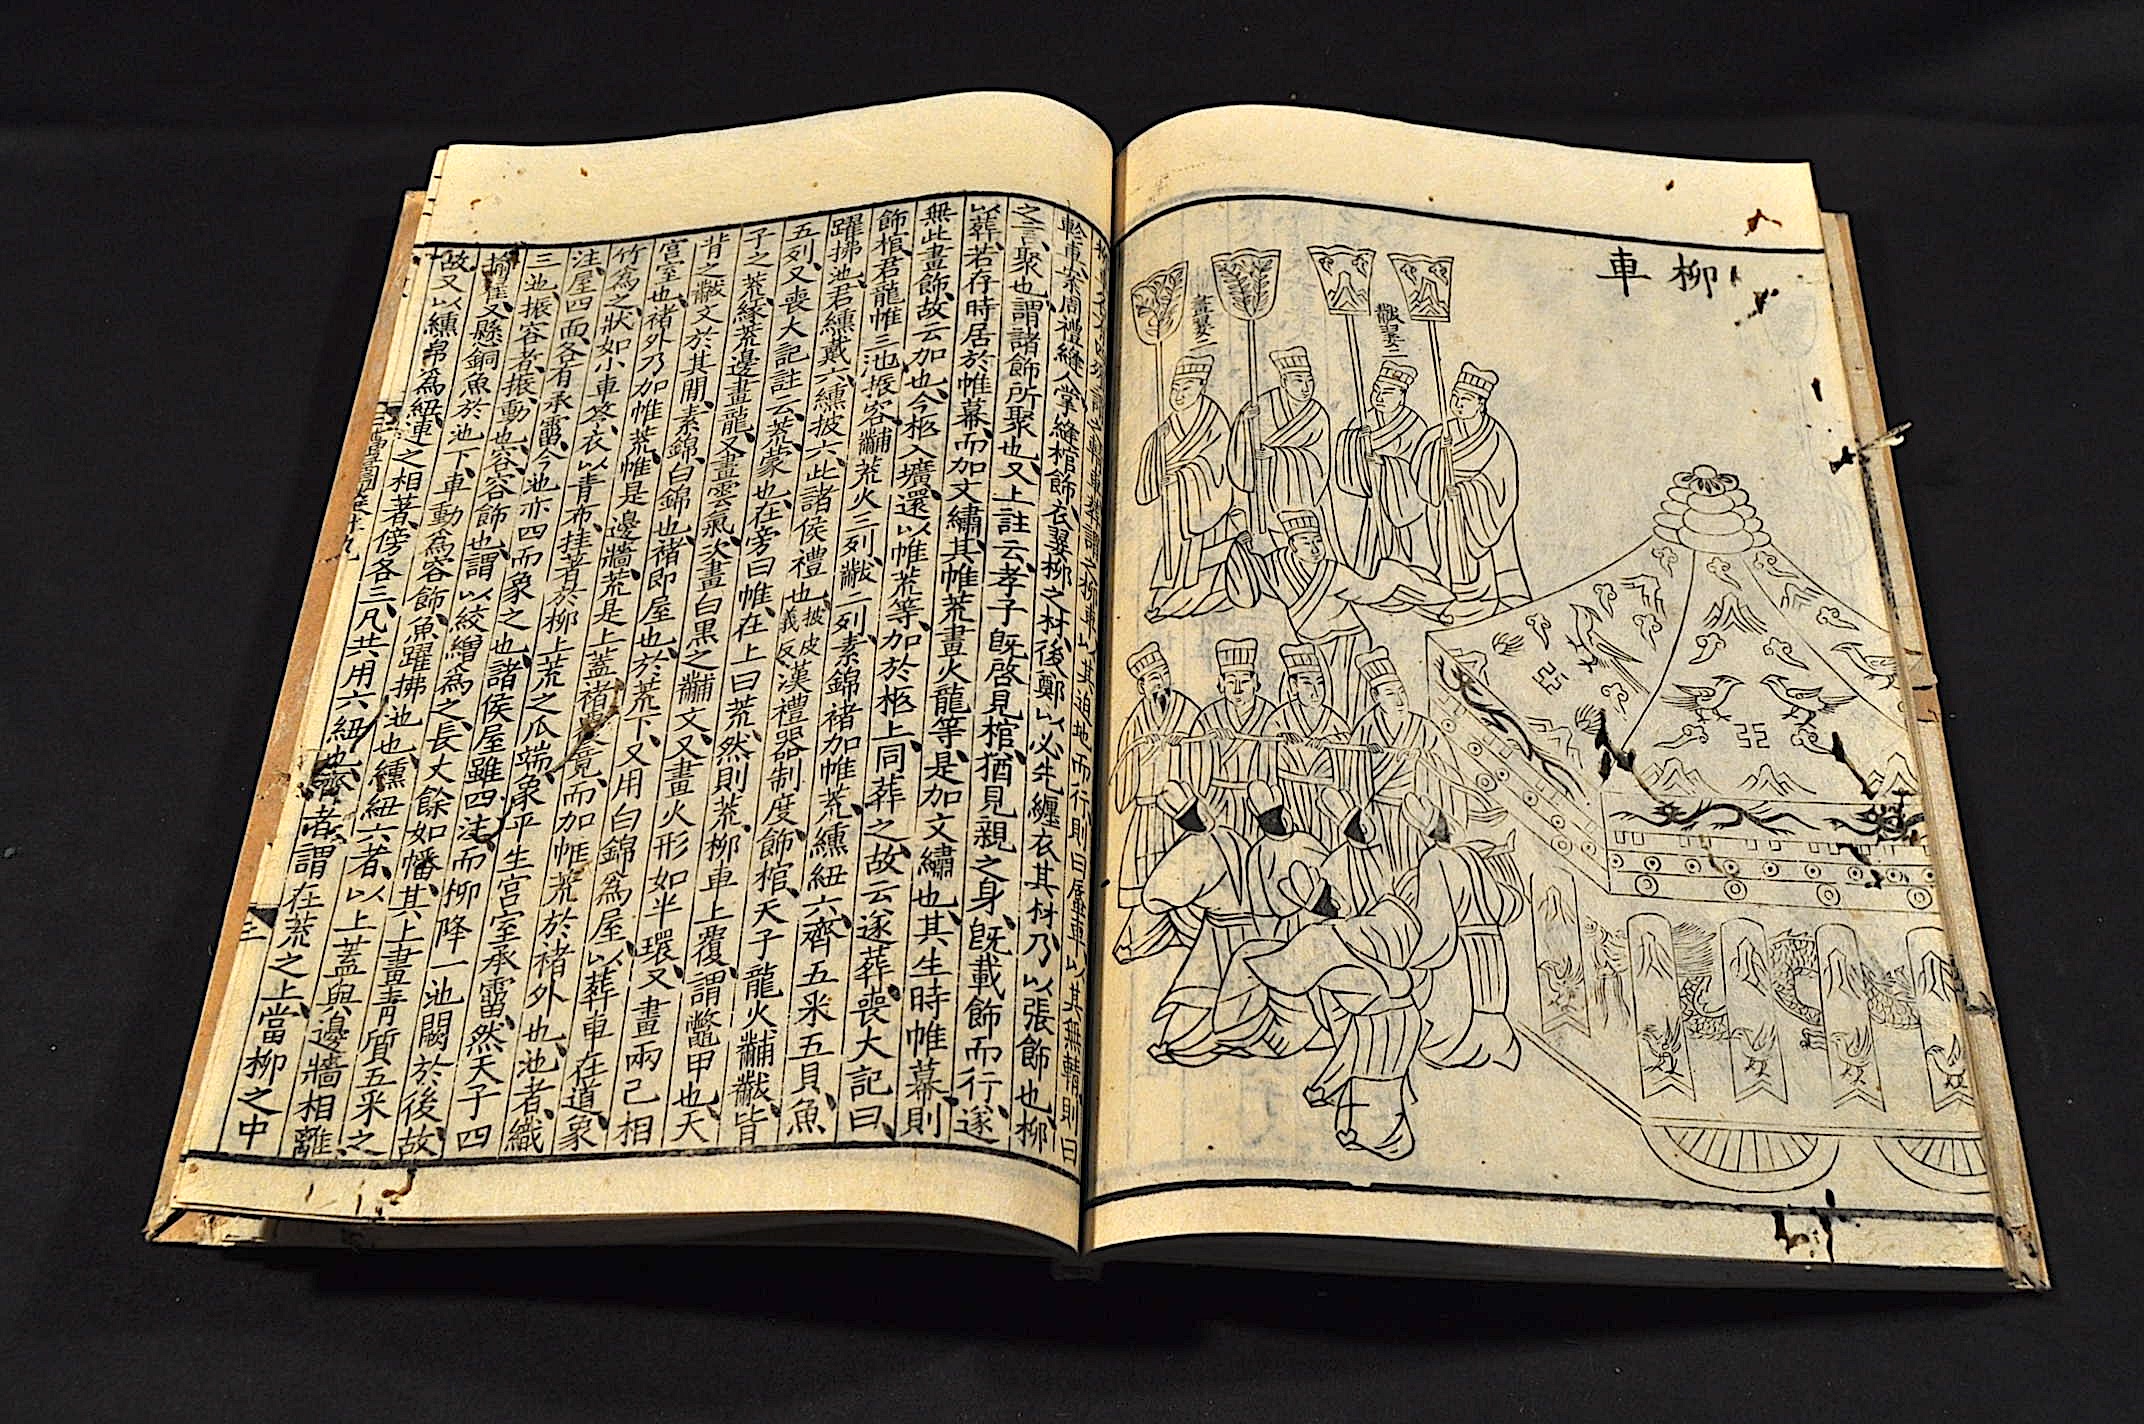 柳車
黻翣二
畫翣二
其迫地而行則曰蜃車以其無輤則曰
輇車案周禮縫人掌縫棺飾衣翣柳之材後鄭以必先纏衣其材乃以張飾也柳
之言聚也謂諸飾所聚也又上註云孝子旣啓見棺猶見親之身旣載飾而行遂
以葬若存時居於帷幕而加文繡其帷荒畫火龍等是加文繡也其生時帷幕則
無此畫飾故云加也今柩入壙還以帷荒等加於柩上同葬之故云遂葬喪大記曰
飾棺君龍帷三池振容黼荒火三列黻三列素錦褚加帷荒纁紐六齊五采五貝魚
躍拂池君纁戴六纁披六此諸侯禮也披皮義反漢禮器制度飾棺天子龍火黼黻皆
五列又喪大記註云荒蒙也在旁曰帷在上曰荒然則荒柳車上覆謂鼈甲也天
子之荒緣荒邊畫龍又畫雲氣次畫白黑之黼文又畫火形如半環又畫兩己相
背之黻文於其閒素錦白錦也褚即屋也於荒下又用白錦爲屋以葬車在道象
宮室也褚外乃加帷荒帷是邊牆荒是上蓋褚而加帷荒於褚外也池者織
竹爲之狀如小車笭衣以青布挂著於柳上荒之瓜端象平生宮室承霤然天子四
注屋四面各有承霤今池亦四而象之也諸侯屋雖四注而柳降一池闕於後故
三池振容者振動也容容飾也謂以絞繒爲之長丈餘如幡其上畫青質五采之
揄又縣銅魚於池下車動爲容飾魚躍拂池也纁紐六者以上蓋與邊牆相離
故又以纁帛爲紐連之相著傍各三凡共用六紐也齊者謂在荒之上當柳之中
三